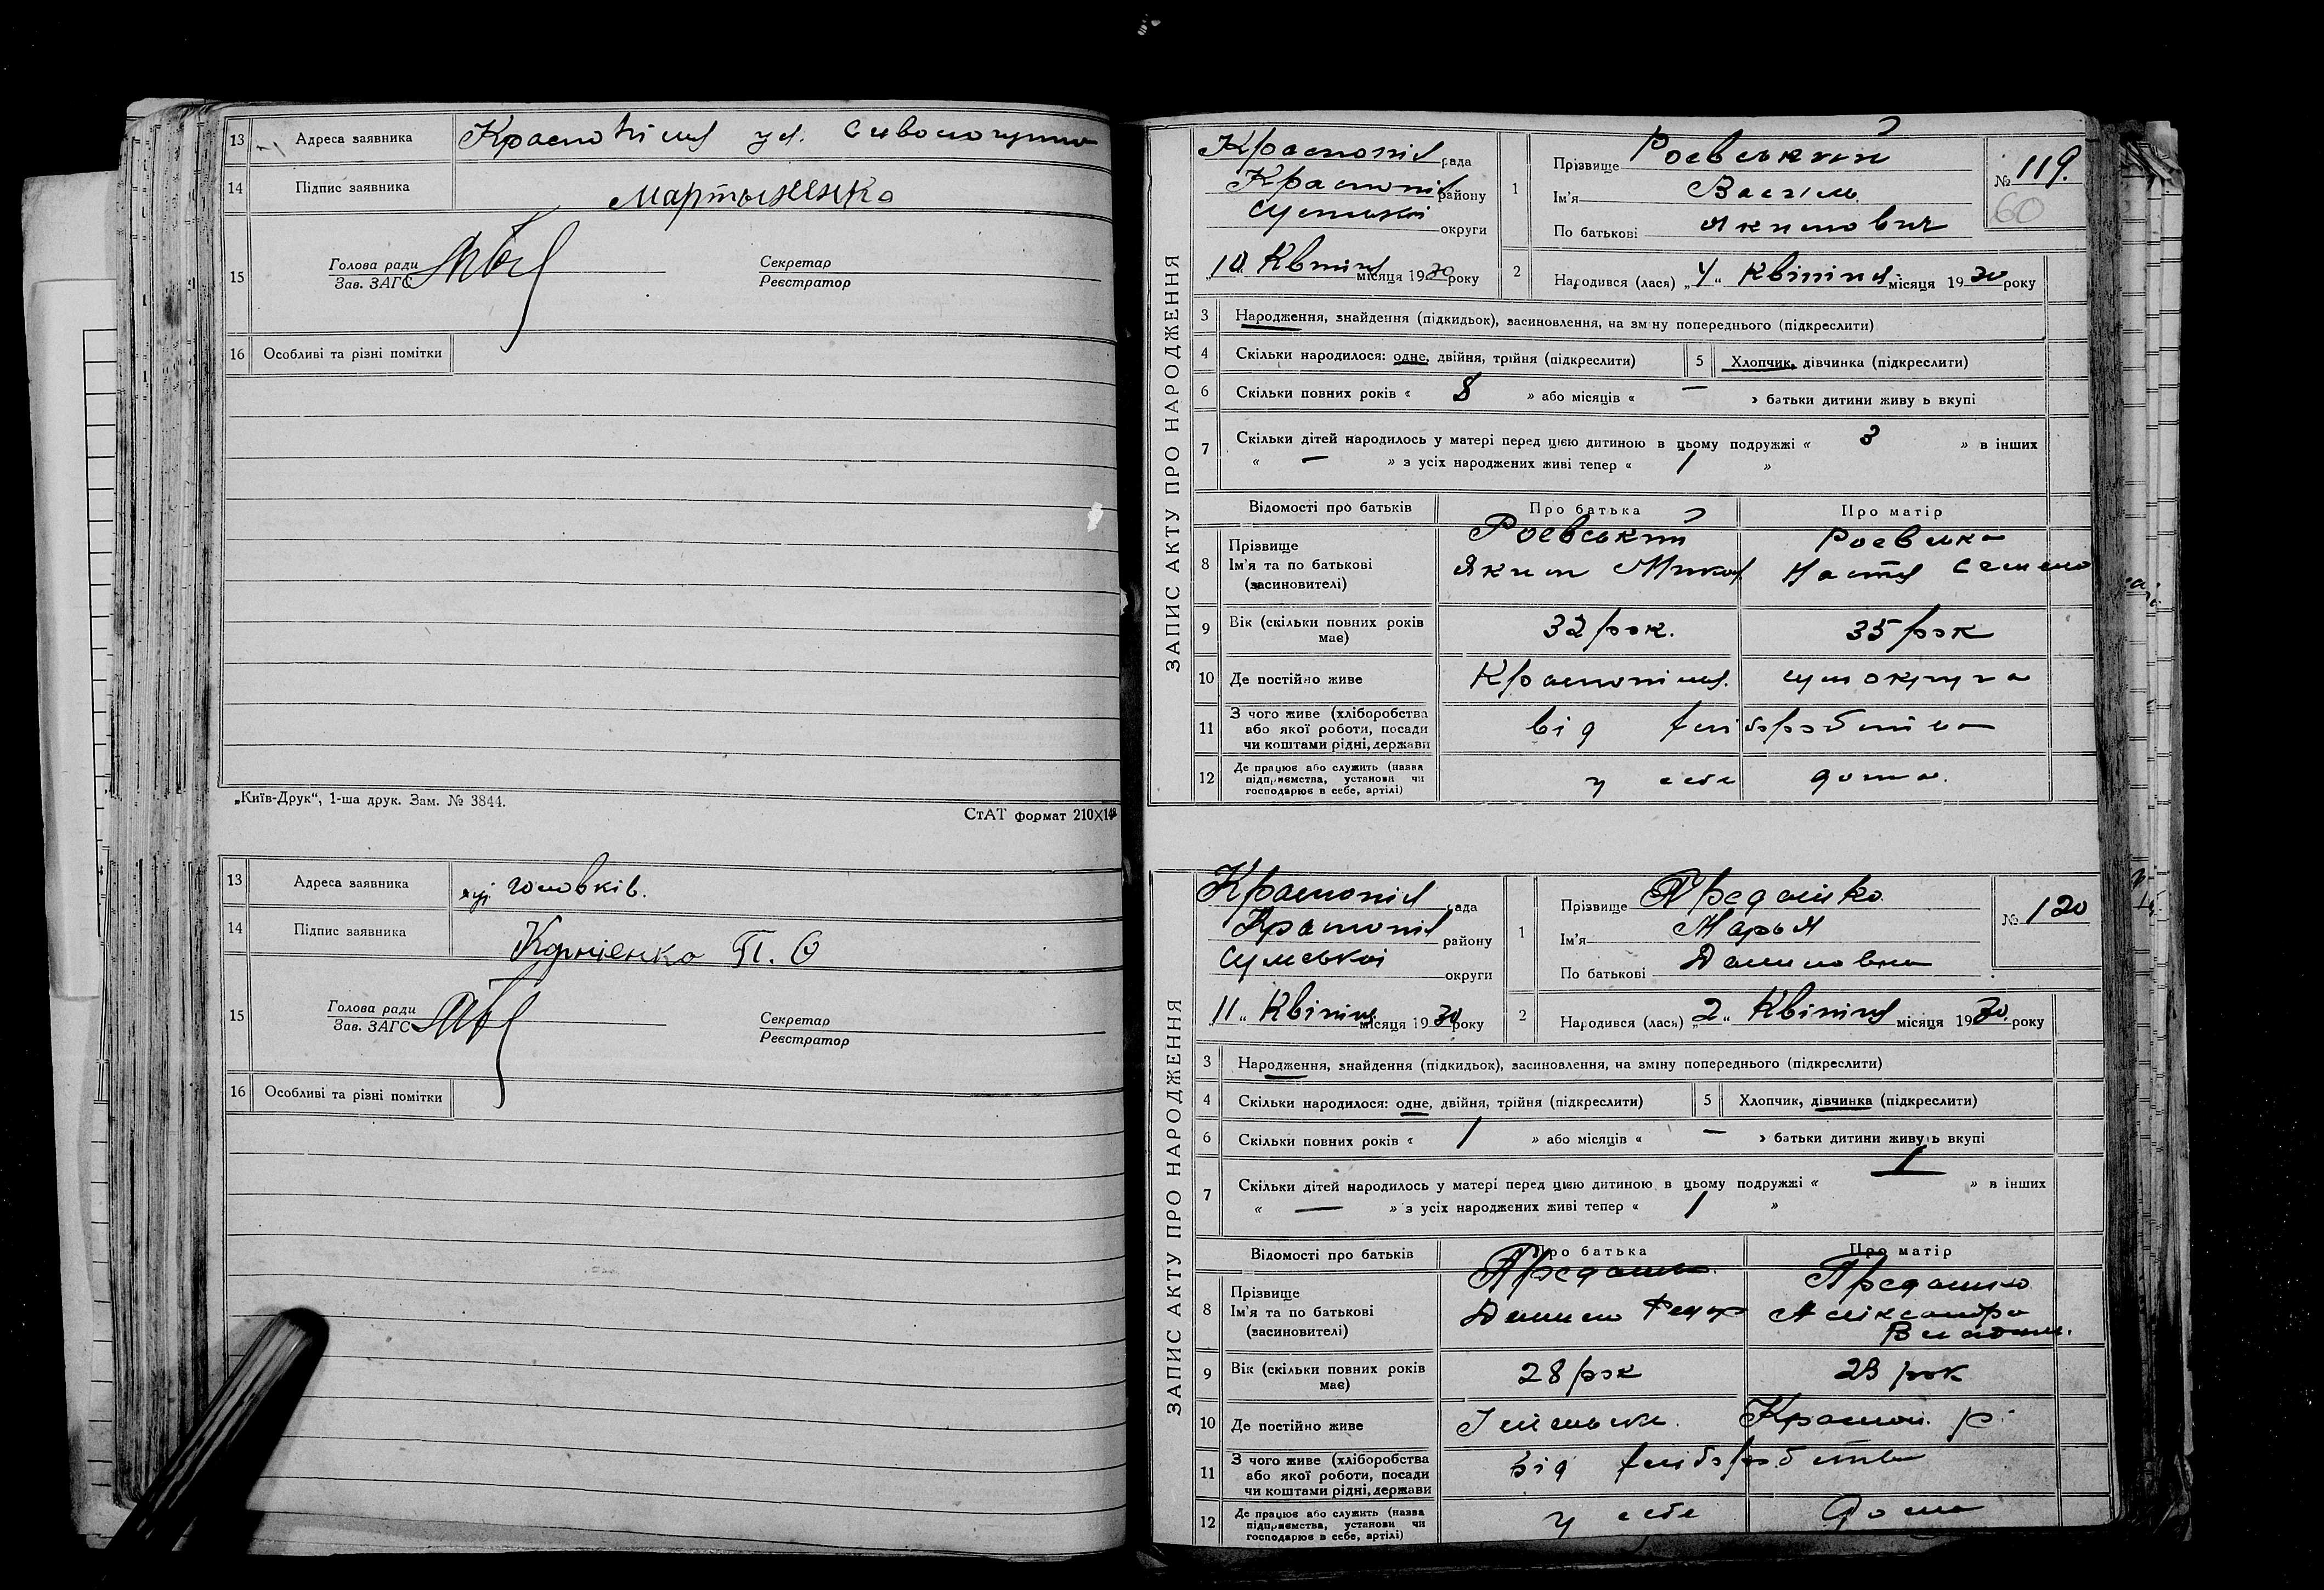 13 Адреса заявника Краснопілля ул.
14 Підпис заявника Мартыненко
15 Голова ради
Зав. ЗАГС
Секретар
Реєстратор
16 Особливі та різні помітки
„Київ-Друк“, 1-ша друк. Зам. № 3844.
СтАТ формат 210×148
13 Адреса заявника
14 Підпис заявника Корнієнко П. О
15 Голова ради
Зав. ЗАГС
Секретар
Реєстратор
16 Особливі та різні помітки
ЗАПИС АКТУ ПРО НАРОДЖЕННЯ
Краснопіл рада
Краснопіл району
Сумської округи
„10„ Квітня місяця 1930 року
1 Прізвище Роєвський
Ім'я Василь
По батькові Якимович
№ 119.
60
2 Народився (лася) „4“ Квітня місяця 1930 року
3 Народження, знайдення (підкидьок), засиновлення, на зміну попереднього (підкреслити)
4 Скільки народилося: одне, двійня, трійня (підкреслити) 5 Хлопчик, дівчинка (підкреслити)
6 Скільки повних років « 8 » або місяців « — » батьки дитини живу ь вкупі
7 Скільки дітей народилось у матері перед цією дитиною в цьому подружжі « 3 » в інших
« — » з усіх народжених живі тепер « 1 »
Відомості про батьків Про батька Про матір
8 Прізвище
Ім'я та по батькові
(засиновителі)
Роєвський
Яким Микол
Роевська
Настя Семено
9 Вік (скільки повних років
має)
32 рок. 35 рок
10 Де постійно живе Краснопілля. сумокруга
11 З чого живе (хліборобства
або якої роботи, посади
чи коштами рідні, держави
від хліборобства
12 Де працює або служить (назва
підприємства, установи чи
господарює в себе, артілі)
у себе дома.
ЗАПИС АКТУ ПРО НАРОДЖЕННЯ
Краснопіл рада
Краснопіл району
Сумської округи
11„ Квітня місяця 1930 року
1 Прізвище
Ім'я Марья
По батькові Даниловна
№ 120
2 Народився (лась) „2„ Квітня місяця 1930 року
3 Народження, знайдення (підкидьок), засиновлення, на зміну попереднього (підкреслити)
4 Скільки народилося: одне, двійня, трійня (підкреслити) 5 Хлопчик, дівчинка (підкреслити)
6 Скільки повних років « 1 » або місяців « — » батьки дитини живуть вкупі
7 Скільки дітей народилось у матері перед цією дитиною в цьому подружжі « 1 » в інших
« — » з усіх народжених живі тепер « 1 »
Відомості про батьків Про батька Про матір
8 Прізвище
Ім'я та по батькові
(засиновителі)
Данило Федор
Алісксандра
9 Вік (скільки повних років
має)
28 рок 23 рок
10 Де постійно живе Красноп. р.
11 З чого живе (хліборобства
або якої роботи, посади
чи коштами рідні, держави
від хліборобства
12 Де працює або служить (назва
підприємства, установи чи
господарює в себе, артілі)
у себе дома